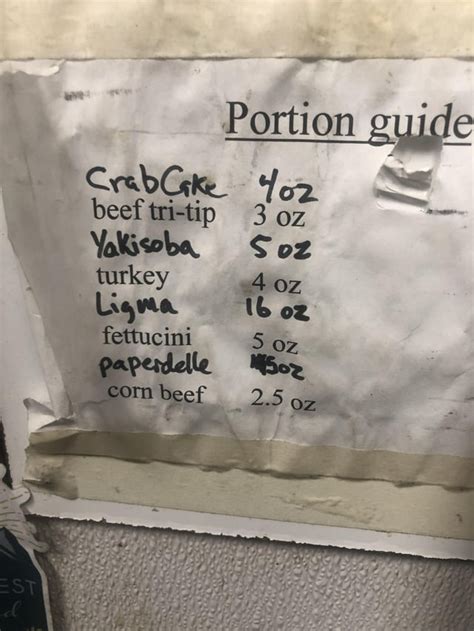 Portion guide
Crab Cake 4 oz
beef tri-tip 3 oz
Yakisoba 5 oz
turkey 4 oz
Ligma 16 oz
fettucini 5 oz
paperdelle 5 oz
corn beef 2.5 oz
EST
d